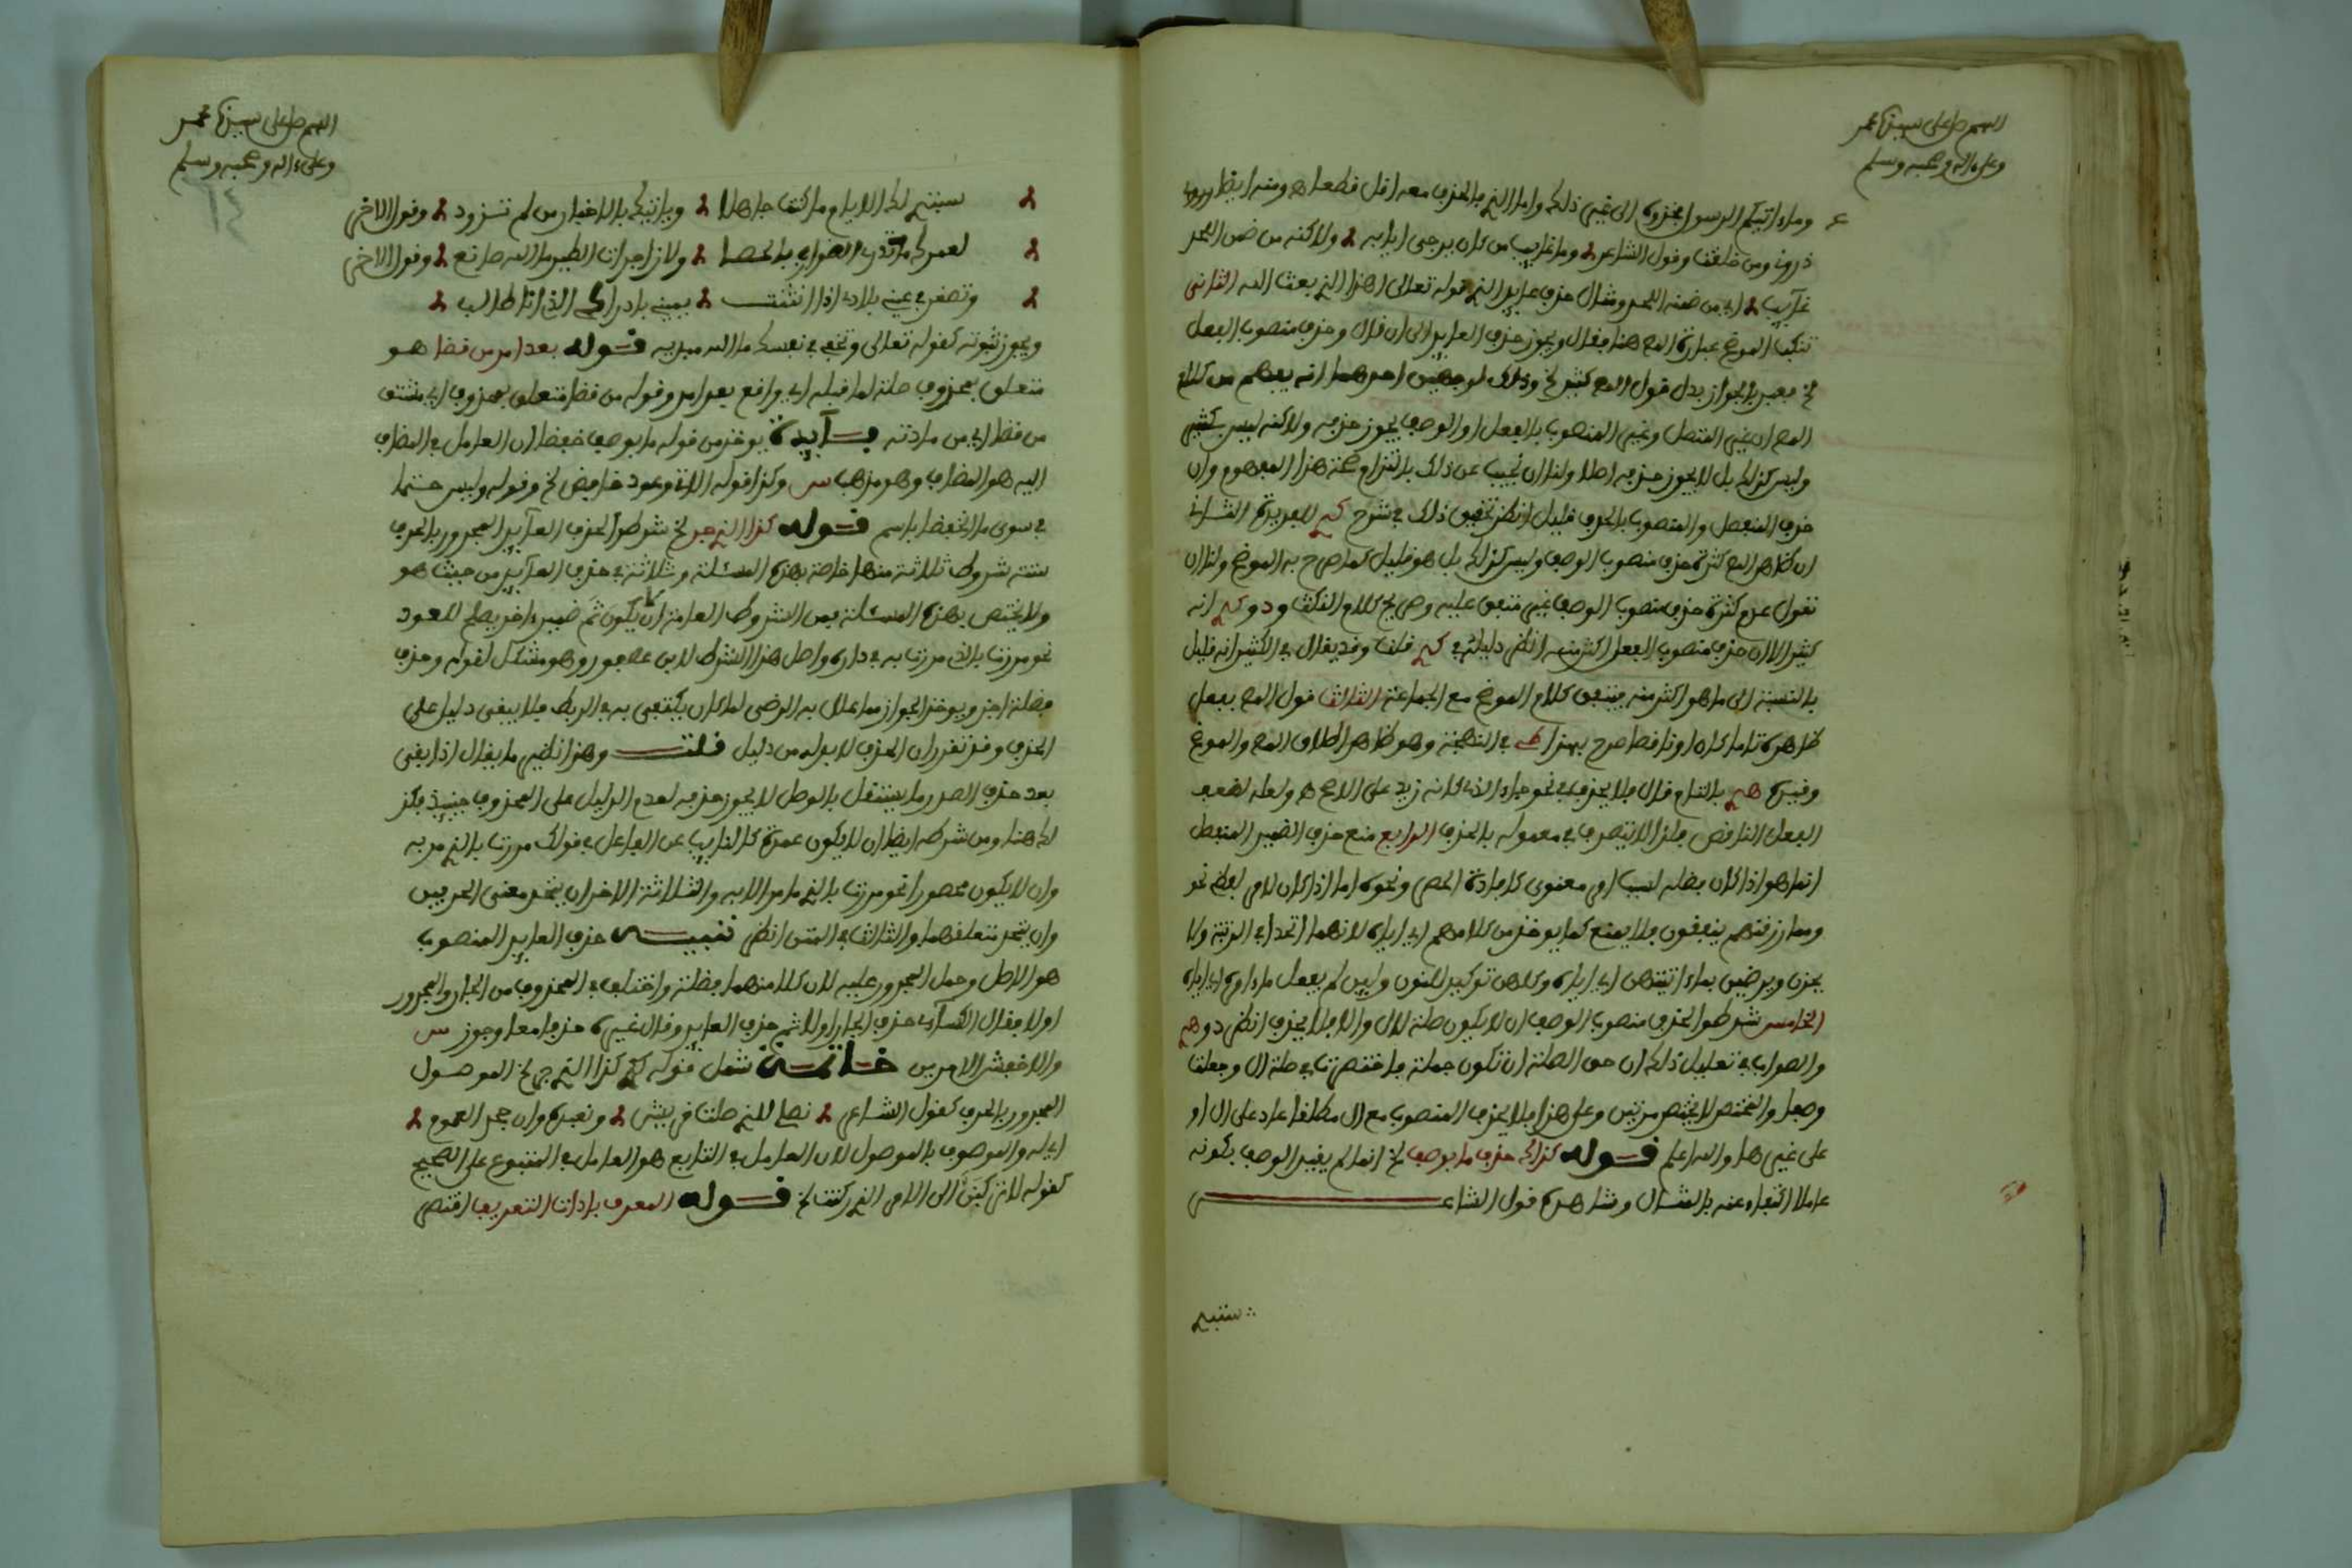 اللهم صل على سيدنا محمد
وعلى ءاله وصحبه وسلم
وماء اتيكم الرسول فخذوه الى غير ذلك واما الذي بالحذف معه اقل قطعا ه ومنه ايضا
ذرني ومن خلقت وقول الشاعر وما غايب من كان يرجى ايابه ولاكنه من ضمن اللحد
غآيب اي من ضمنه اللحد ومثال حذف عايد الذي قوله تعالى اهذا الذي بعث الله الثاني
تنكب الموضح عبارة المص هنا فقال ويجوز حذف العايد الى ان قال وحذف منصوب الفعل
لخ فعبر بالجواز بدل قول المص كثير لخ وذلك لوجهين احدهما انه يفهم من كلام
المص ان غير المتصل وغير المنصوب بالفعل او الوصف يجوز حذفه ولاكنه ليس بكثير
وليس كذلك بل لا يجوز حذفه اصلا ولنا ان نجيب عن ذلك بالتزام صحة هذا المفهوم وان
حذف المنفصل والمنصوب بالحرف قليل انظر تحقيق ذلك في شرح للفريدة الثاني
ان ظاهر المص كثرة حذف منصوب الوصف وليس كذلك بل هو قليل كما صرح به الموضح ولنا ان
نقول عدم كثرة حذف منصوب الوصف غير متفق عليه وصريح كلام النكت ودو انه
كثير الا ان حذف منصوب الفعل اكثر منه انظر دليله في قلت وقد يقال في الكثير انه قليل
بالنسبة الى ما هو اكثر منه فيتفق كلام الموضح مع الجماعة الثالث قول المص بفعل
ظاهره تاما كان او ناقصا صرح بهذا في البهجة وهو ظاهر اطلاق المص والموضح
وقيده بالتام قال فلا يحذف في نحو جاء الذي كانه زيد على الاصح ه ولعله لضعف
الفعل الناقص فلذا لا يتصرف في معموله بالحذف الرابع منع حذف الضمير المنفصل
انما هو اذا كان فصله لسبب امر معنوي كافادة الحصر ونحوه اما اذا كان لامر لفظي نحو
ومما رزقنهم ينفقون فلا يمتنع كما يوخذ من كلامهم اي اياه لانهما اتحدا في الرتبة ولا
يحزن ويرضين بماء اتيتهن اي اياه وكلهن توكيد للنون وليس لم يفعل ماء امره اي اياه
الخامس شرطوا لحذف منصوب الوصف ان لا يكون صلة لال والا فلا يحذف انظر دو
والصواب في تعليل ذلك ان حق الصلة ان تكون جملة فاختصرت في صلة ال وجعلت
وصفا والمختصر لا يختصر مرتين وعلى هذا فلا يحذف المنصوب مع ال مطلقا عاد على ال او
على غيرها والله اعلم قوله كذاك حذف ما بوصف لخ انما لم يقيد الوصف بكونه
عاملا اكتفاء عنه بالمثال وشاهده قول الشاعر
ستبد
اللهم صل على سيدنا محمد
وعلى ءاله وصحبه وسلم
٦٤
ستبدي لك الايام ما كنت جاهلا وياتيك بالاخبار من لم تزود وقول الاخر
لعمرك ما تدري الضوارب بالحصا ولا زاجرات الطير ما الله صانع وقول الاخر
وتصغر في عيني بلادي اذا انثنت يميني بادراك الذي انا طالب
ويجوز ثبوته كقوله تعالى وتخفي في نفسك ما الله مبديه قوله بعد امر من قضا هو
متعلق بمحذوف صلة لما قبله اي واقع بعد امر وقوله من قضا متعلق بمحذوف اي مشتق
من قضا اي من مادته فــآيدة يوخذ من قوله ما بوصف خفضا ان العامل في المضاف
اليه هو المضاف وهو مذهب س وكذا قوله الاتي وعود خافض لخ وقوله وليس حتما
في سوى ما انخفض باسم قوله كذا الذي جر لخ شرطوا لحذف العآيد المجرور بالحرف
ستة شروط ثلاثة منها خاصة بهذه المسئلة وثلاثة في حذف العآيد من حيث هو
ولا يختص بهذه المسئلة فمن الشروط العامة ان لا يكون ثم ضمير ءاخر يصلح للعود
نحو مررت بالذي مررت به في داره واصل هذا الشرط لابن عصفور وهو مشكل لقوله وحذف
فضلة اجز ويوخذ الجواز مما علل به الرضى لما كان يكتفي به في الربط فلا يبقى دليل على
الحذف وقد تقرر ان الحذف لا بد له من دليل قلت وهذا نظير ما يقال اذا بقي
بعد حذف الصدر ما يستقل بالوصل لا يجوز حذفه لعدم الدليل على المحذوف حينيذ فكذ
لك هنا ومن شرطه ايضا ان لا يكون عمدة كالنايب عن الفاعل في قولك مررت بالذي مر به
وان لا يكون محصورا نحو مررت بالذي ما مر الا به والثلاثة الاخر ان يتحد معنى الحرفين
وان يتحد متعلقهما والثالث في المتن انظر تنبيــه حذف العايد المنصوب
هو الاصل وحمل المجرور عليه لان كلا منهما فضلة واختلف في المحذوف من الجار والمجرور
اولا فقال الكسآى حذف الجار اولا ثم حذف العايد وقال غيره حذفا معا وجوز س
والاخفش الامرين خــاتمــة شمل قوله كذا الذي جر لخ الموصول
المجرور بالحرف كقول الشاعر نصلي للذي صلت قريش ونعبده وان جحد العموم
اي له والموصوف بالموصول لان العامل في التابع هو العامل في المتبوع على الصحيح
كقوله لا تركنن الى الامر الذي ركنت لخ قوله المعرف باداة التعريف اقتصر